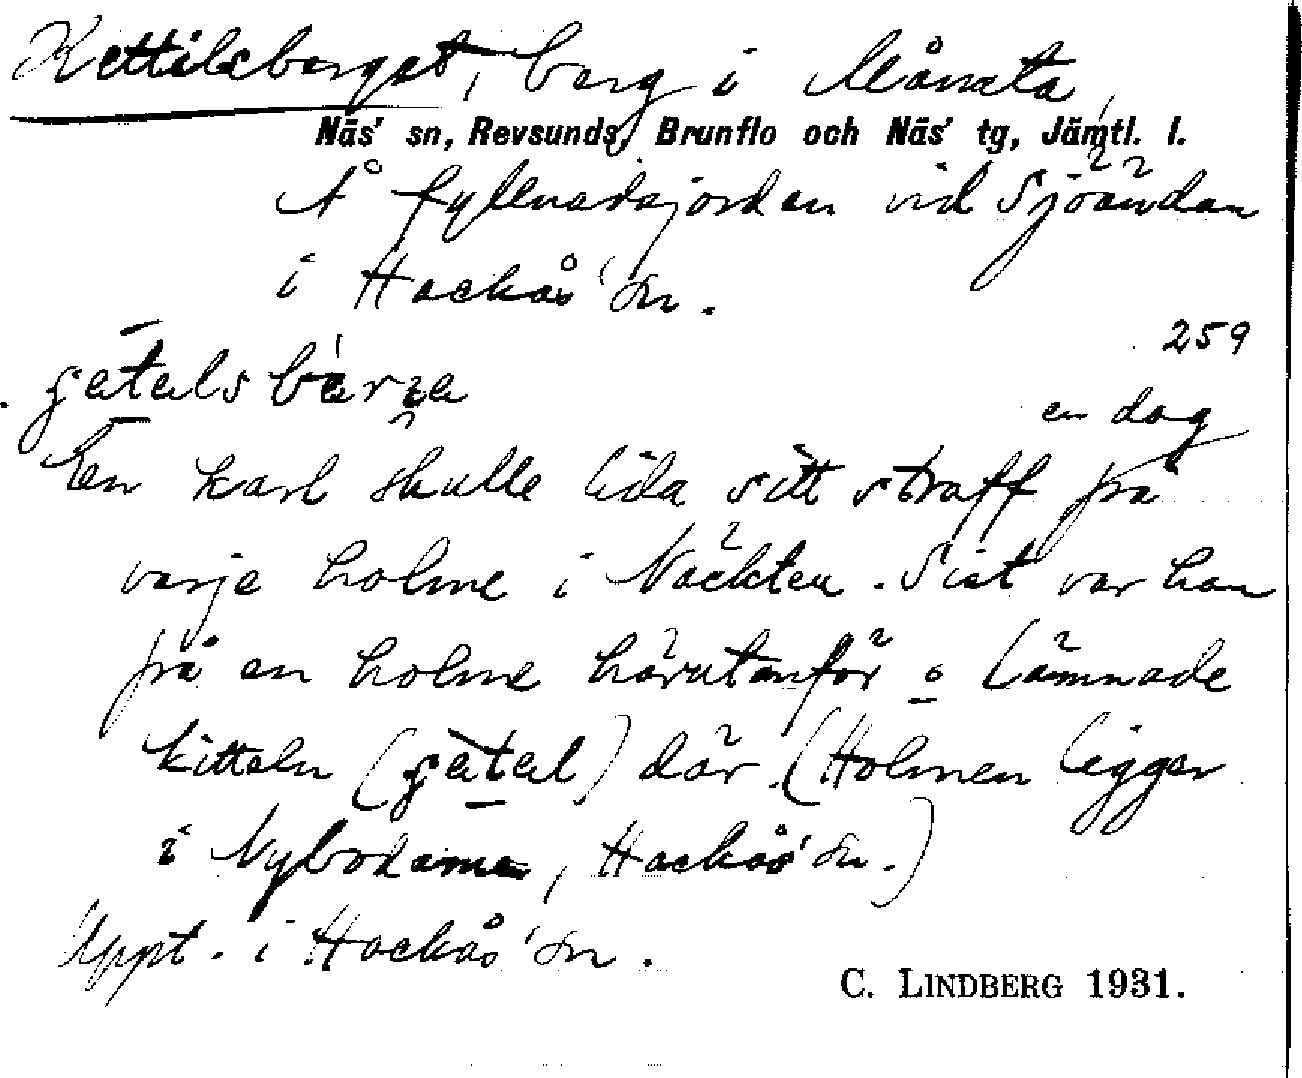 Kettilsberget, berg i Månsta,
Näs' sn, Revsunds, Brunflo och Näs' tg, Jämtl. l.
Å fyllnadsjorden vid Sjöändan
i Hackås' sn.
259
en dag
En karl skulle lida sitt straff på
varje holme i Näckten. Sist var han
på en holme härutanför o lämnade
kitteln ( ) där. (Holmen ligger
i Nybodarna, Hackås' sn.)
Uppt. i Hackås' sn.
C. LINDBERG 1931.